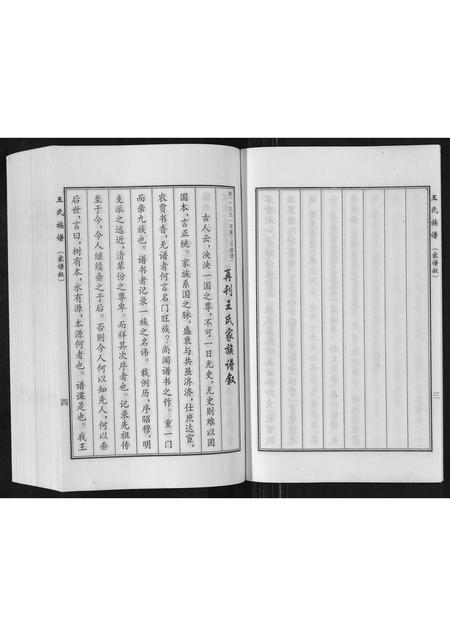 王氏族谱（家谱叙）
三
附一九九一年第三次续谱
再刊王氏家族谱叙
古人云，泱泱一国之尊，不可一日无史，无史则难以固
国本，言正统。家族系国之脉，盛衰与共虽济济，仕庶达宦，
农贾书香，无谱者何言名门旺族？尚闻谱书之作。重一门
而亲九族也。谱书者记录一族之名讳。载例历，序昭穆，明
支派之远近，清辈份之尊卑。而祥其次序者也。记录先祖传
至于今，今人继续垂之于后。否则令人何以知先人，何以垂
后世，言曰，树有本，水有源，本源何者也。谱谍是也。我王
王氏族谱（家谱叙）
四